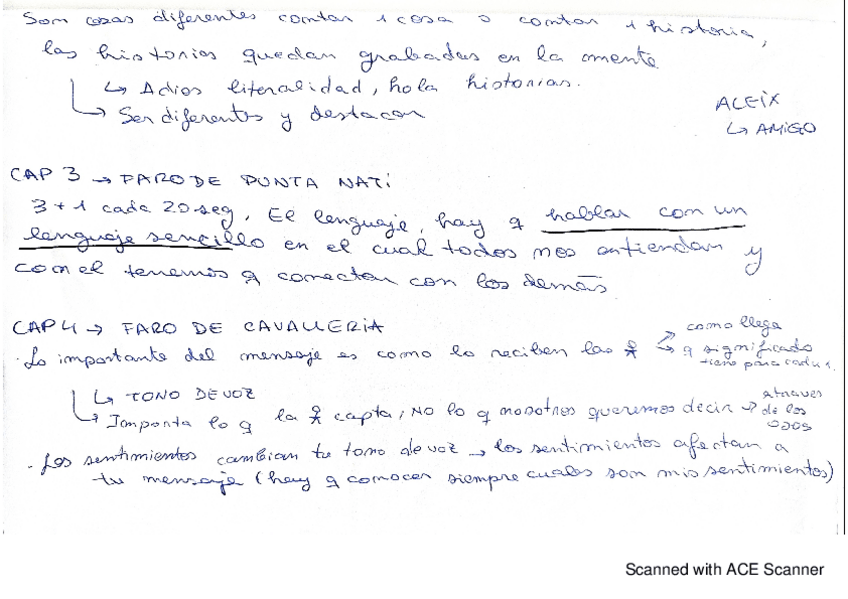 Son cosas diferentes contar 1 cosa o contar 1 historia,
las historias quedan grabadas en la mente
↳ Adios literalidad, hola historias.
↳ Ser diferentes y destacar
ALEIX
↳ AMIGO
CAP 3 → FARO DE PUNTA NATI
3 + 1 cada 20 seg, El lenguaje, hay q hablar con un
lenguaje sencillo en el cual todos nos entiendan y
con el tenemos q conectar con los demás
CAP 4 → FARO DE CAVALLERIA
· Lo importante del mensaje es como lo reciben las
como llega
→ q significado
tiene para cada 1.
↳ TONO DE VOZ
↳ Importa lo q la capta, NO lo q nosotros queremos decir →
atraves
de los
ojos
· Los sentimientos cambian tu tono de voz → los sentimientos afectan a
tu mensaje (hay q conocer siempre cuales son mis sentimientos)
Scanned with ACE Scanner